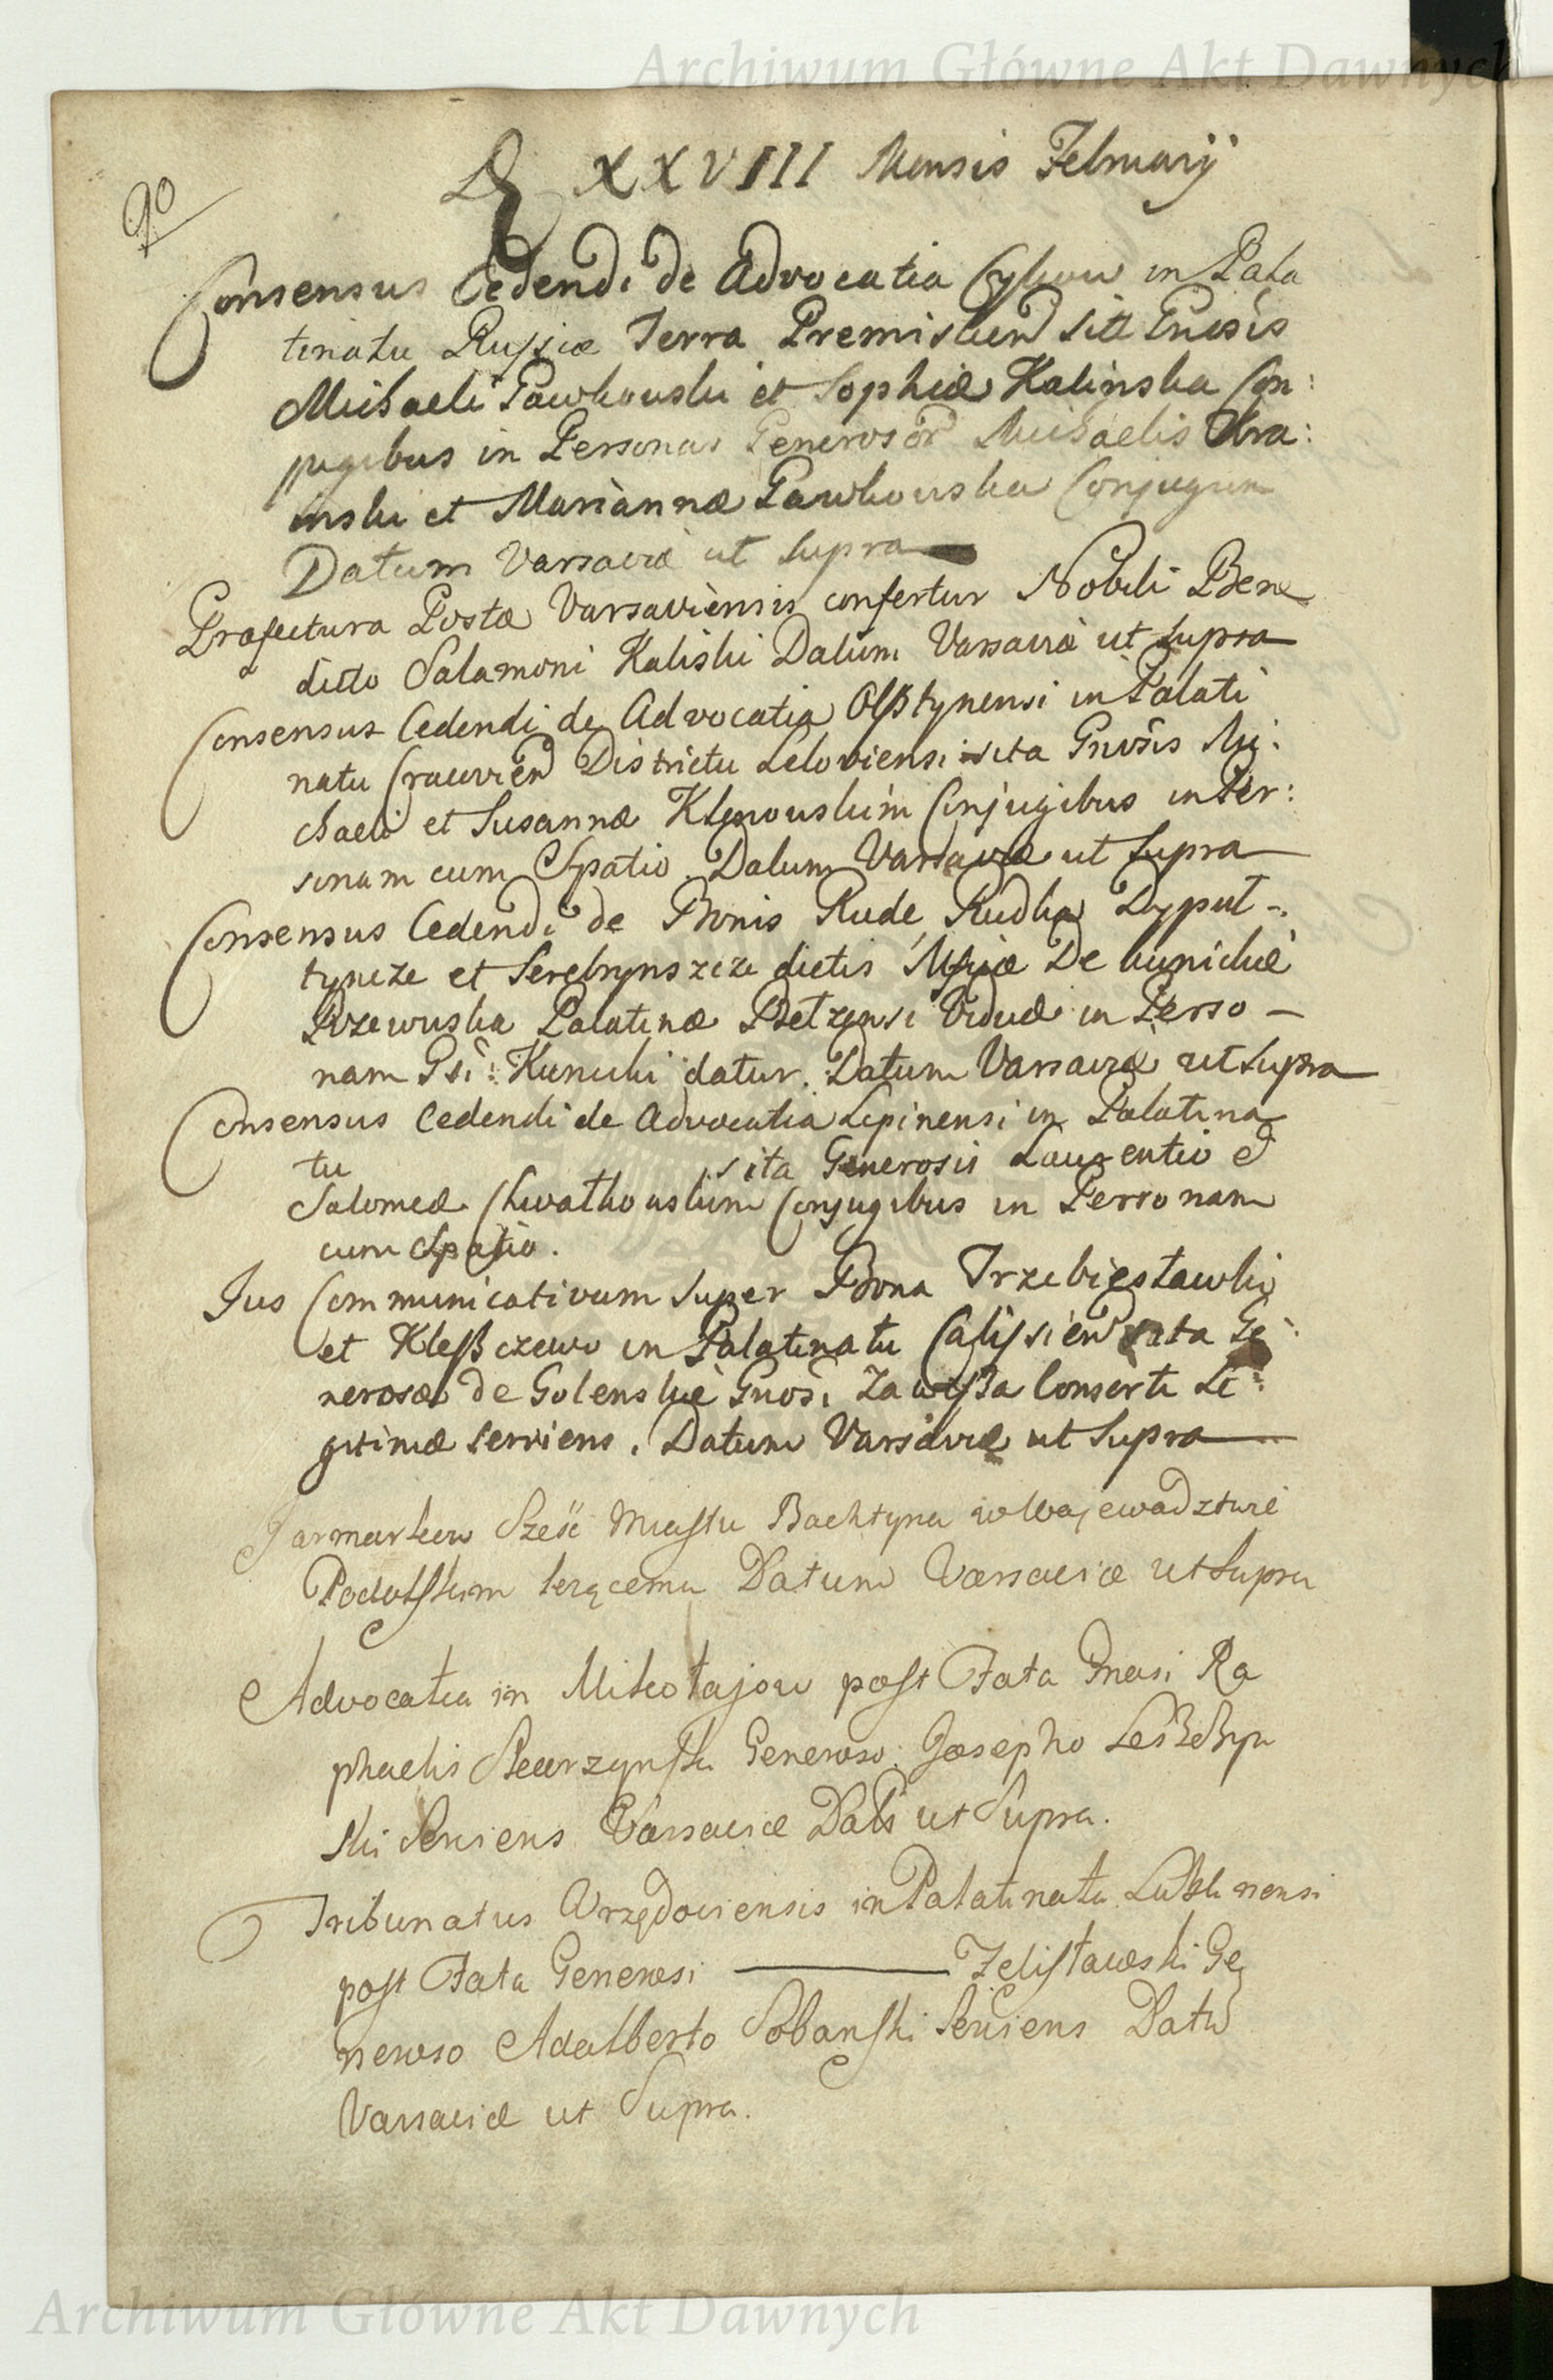 Archiwum Główne Akt Dawnych
90
D XXVIII Mensis Februarij
Consensus Cedendi de Advocatia Cyków in Pala
tinatu Russiæ Terra Premislien Sitt Gnosis
Michaeli Pawłowski et Sophiæ Kalinska Con:
jugibus in Personas Generosor Michaelis Kra:
inski et Mariannæ Pawłowska Conjugum
Datum Varsaviæ ut Supra
Præfectura Postæ Varsaviensis confertur Nobili Bene
dicto Salamoni Kaliski Datum Varsaviæ ut Supra
Consensus Cedendi de Advocatia Olsztynensi in Palati
natu Cracovien Districtu Leloviensi sita Gnosis Mi:
chaeli et Susannæ Conjugibus in Per:
sonam cum Spatio. Datum Varsaviæ ut Supra
Consensus Cedendi de Bonis Rude, Rudka
et Serebrynszcze dictis
Rzewuska Palatinæ Betzensi Viduæ in Perso-
nam Gsi: Kunicki datur. Datum Varsaviæ ut Supra
Consensus Cedendi de Advocatia Lipinensi in Palatina
tu sita Generosis Laurentio et
Salomeæ Conjugibus in Personam
cum Spatio.
Jus Communicativum Super Bona Trzebiesławki
et Kleszczewo in Palatinatu Calissien sita Ge:
nerosæ de Golenskie Gnosi Zawisza Consorti Le:
gitimæ serviens. Datum Varsaviæ ut Supra
Jarmarkow Sześć Miastu Bachtynu w Wojewodztwie
Podolskim leżącemu Datum Varsaviæ ut Supra
Advocatia in Mikołajow post Fata Gnosi Ra
phaelis Skarzynski Generoso Josepho
ski Serviens Varsaviæ Dats ut Supra.
Tribunatus Urzędoviensis in Palatinatu Lublinensi
post Fata Generosi ——— Zelisławski Ge
neroso Adalberto Sobanski Serviens Datu
Varsaviæ ut Supra.
Archiwum Główne Akt Dawnych